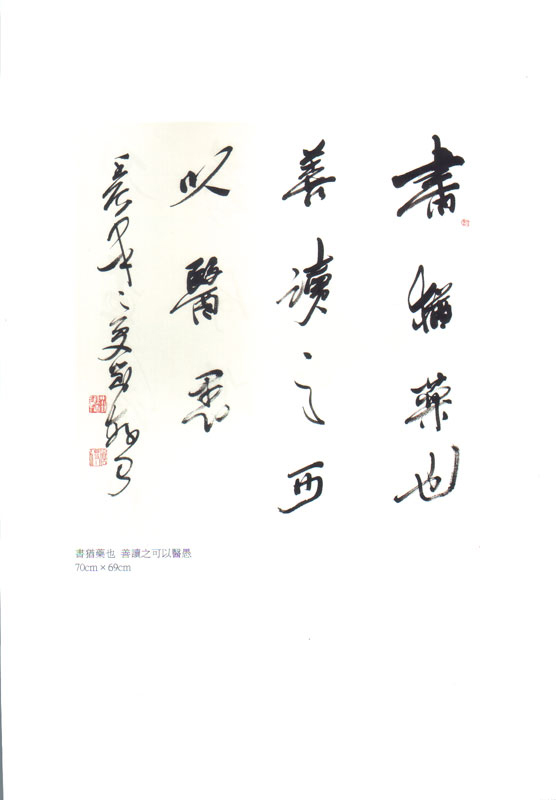 書猶藥也
善讀之可
以醫愚
書猶藥也 善讀之可以醫愚
70cm × 69cm